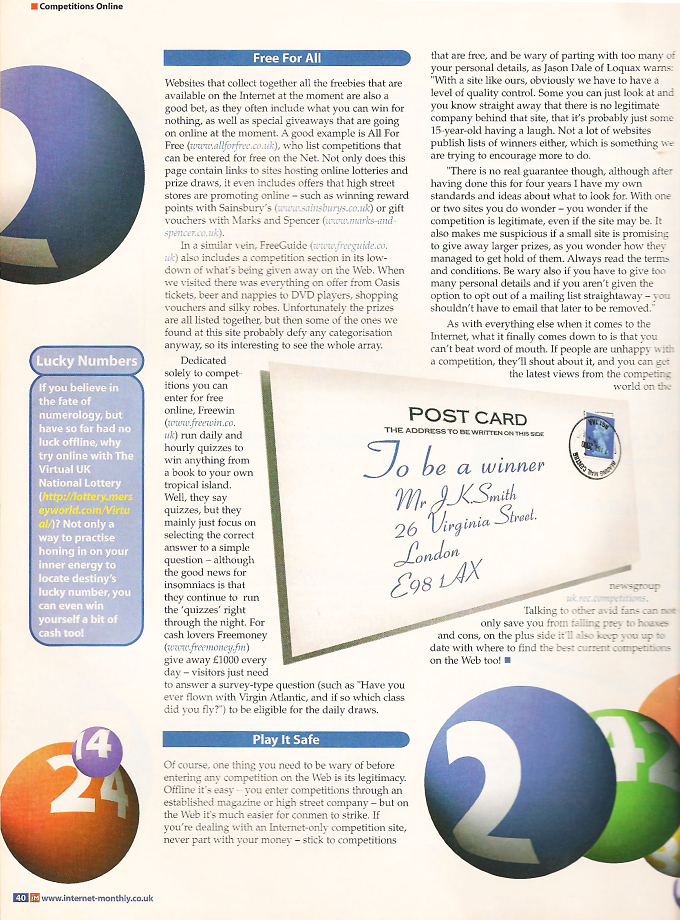 Competitions Online
Free For All
Websites that collect together all the freebies that are
available on the Internet at the moment are also a
good bet, as they often include what you can win for
nothing, as well as special giveaways that are going
on online at the moment. A good example is All For
Free (www.allforfree.co.uk), who list competitions that
can be entered for free on the Net. Not only does this
page contain links to sites hosting online lotteries and
prize draws, it even includes offers that high street
stores are promoting online – such as winning reward
points with Sainsbury's (www.sainsburys.co.uk) or gift
vouchers with Marks and Spencer (www.marks-and-
spencer.co.uk).
In a similar vein, FreeGuide (www.freeguide.co.
uk) also includes a competition section in its low-
down of what's being given away on the Web. When
we visited there was everything on offer from Oasis
tickets, beer and nappies to DVD players, shopping
vouchers and silky robes. Unfortunately the prizes
are all listed together, but then some of the ones we
found at this site probably defy any categorisation
anyway, so its interesting to see the whole array.
Dedicated
solely to compet-
itions you can
enter for free
online, Freewin
(www.freewin.co.
uk) run daily and
hourly quizzes to
win anything from
a book to your own
tropical island.
Well, they say
quizzes, but they
mainly just focus on
selecting the correct
answer to a simple
question – although
the good news for
insomniacs is that
they continue to run
the 'quizzes' right
through the night. For
cash lovers Freemoney
(www.freemoney.fm)
give away £1000 every
day – visitors just need
to answer a survey-type question (such as "Have you
ever flown with Virgin Atlantic, and if so which class
did you fly?") to be eligible for the daily draws.
Play It Safe
Of course, one thing you need to be wary of before
entering any competition on the Web is its legitimacy.
Offline it's easy – you enter competitions through an
established magazine or high street company – but on
the Web it's much easier for conmen to strike. If
you're dealing with an Internet-only competition site,
never part with your money – stick to competitions
that are free, and be wary of parting with too many of
your personal details, as Jason Dale of Loquax warns:
"With a site like ours, obviously we have to have a
level of quality control. Some you can just look at and
you know straight away that there is no legitimate
company behind that site, that it's probably just some
15-year-old having a laugh. Not a lot of websites
publish lists of winners either, which is something we
are trying to encourage more to do.
"There is no real guarantee though, although after
having done this for four years I have my own
standards and ideas about what to look for. With one
or two sites you do wonder – you wonder if the
competition is legitimate, even if the site may be. It
also makes me suspicious if a small site is promising
to give away larger prizes, as you wonder how they
managed to get hold of them. Always read the terms
and conditions. Be wary also if you have to give too
many personal details and if you aren't given the
option to opt out of a mailing list straightaway – you
shouldn't have to email that later to be removed."
As with everything else when it comes to the
Internet, what it finally comes down to is that you
can't beat word of mouth. If people are unhappy with
a competition, they'll shout about it, and you can get
the latest views from the competing
world on the
newsgroup
uk.rec.competitions.
Talking to other avid fans can not
only save you from falling prey to hoaxes
and cons, on the plus side it'll also keep you up to
date with where to find the best current competitions
on the Web too!
Lucky Numbers
If you believe in
the fate of
numerology, but
have so far had no
luck offline, why
try online with The
Virtual UK
National Lottery
(http://lottery.mers
eyworld.com/Virtu
al/)? Not only a
way to practise
honing in on your
inner energy to
locate destiny's
lucky number, you
can even win
yourself a bit of
cash too!
POST CARD
THE ADDRESS TO BE WRITTEN ON THIS SIDE
To be a winner
Mr J K Smith
26 Virginia Street.
London
E98 1AX
2
14
24
2
42
40 im www.internet-monthly.co.uk